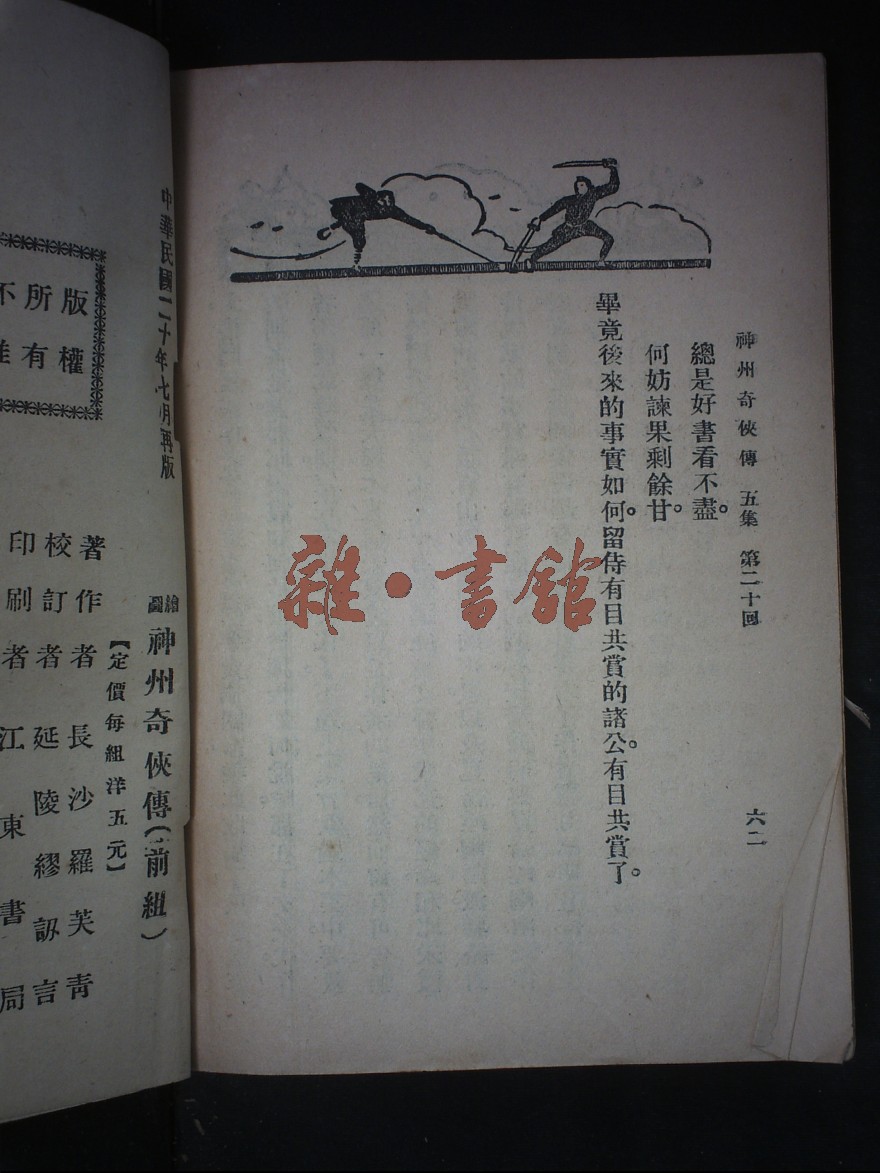 神州奇俠傳 五集 第二十回 六二
總是好書看不盡。
何妨諫果剩餘甘。
畢竟後來的事實如何。留待有目共賞的諸公。有目共賞了。
雜·書館
中華民國二十年七月再版
繪圖
神州奇俠傳(前組)
【定價每組洋五元】
著作者 長沙羅芙青
校訂者 延陵繆訒言
印刷者 江東書局
版權
所有
不准